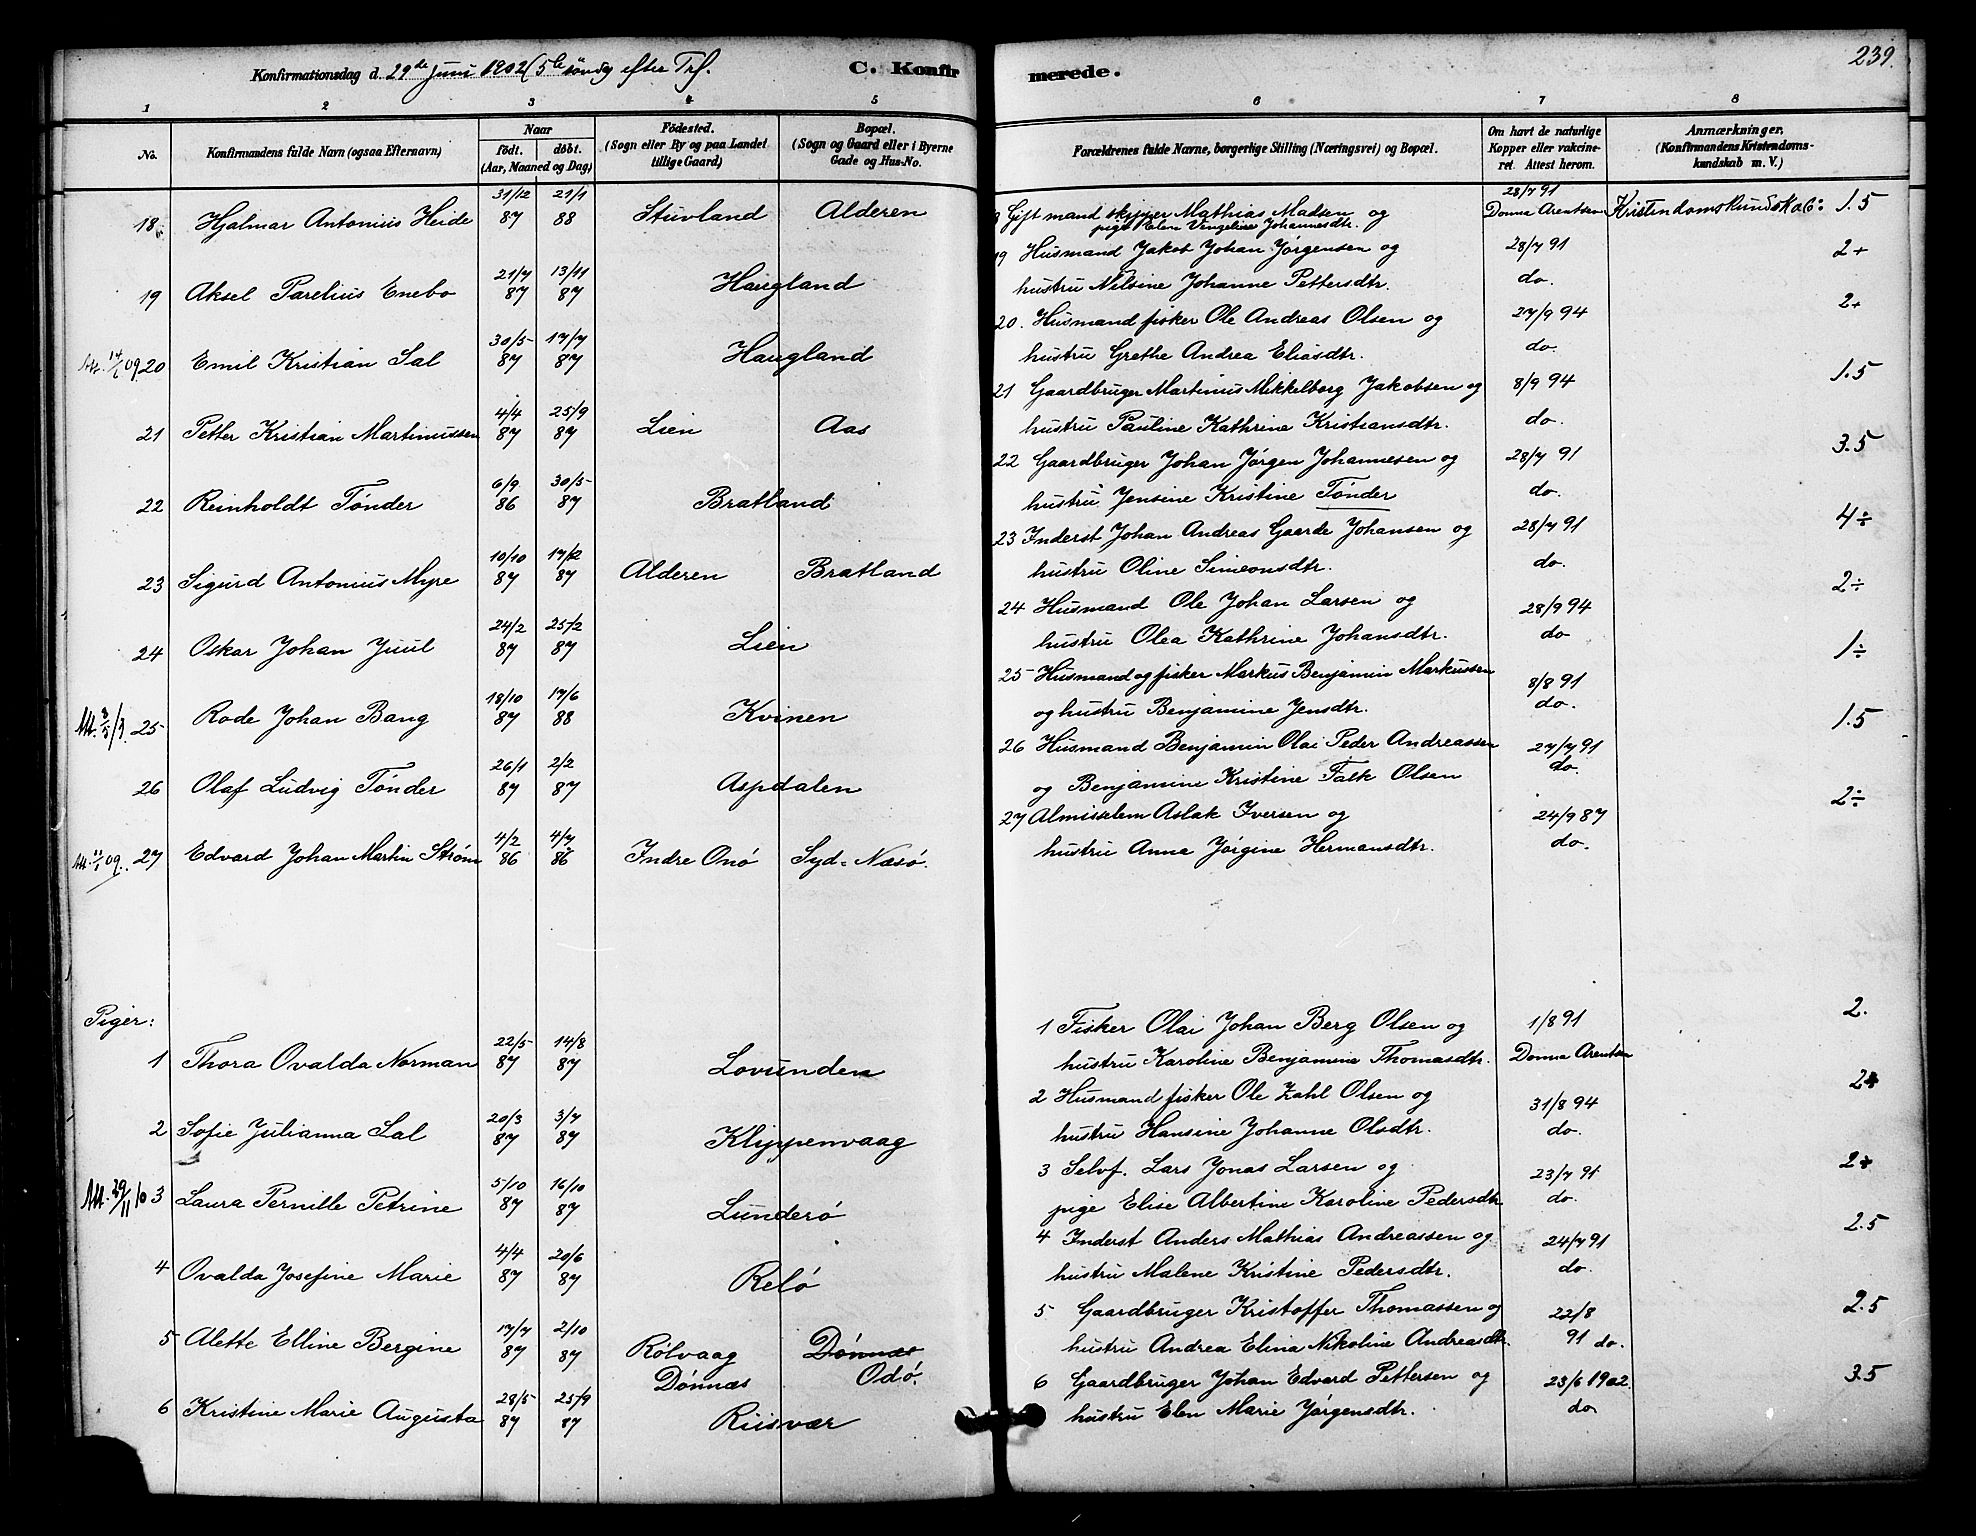 Konfirmationsdag d. 29de Juni 1902 (5te søndg efter Trf.
C. Konfirmerede.
239.
1 2 3 4 5 6 7 8
No.
Konfirmandens fulde Navn (ogsaa Efternavn)
Naar
födt. döbt.
(Aar, Maaned og Dag)
Födested.
(Sogn eller By og paa Landet
tillige Gaard)
Bopæl.
(Sogn og Gaard eller i Byerne
Gade og Hus-No.
Forældrenes fulde Navne, borgerlige Stilling (Næringsvei) og Bopæl.
Om havt de naturlige
Kopper eller vakcine-
ret. Attest herom.
Anmærkninger,
(Konfirmandens Kristendoms-
kundskab m. V.)
18 Hjalmar Antonius Heide 31/12 87 21/1 88 Stuvland Alderen
Gift mand skipper Mathias Madsen og
pige Elen Vingeline Johannesdtr.
28/7 91
Donna Arentsen
Kristendomskundskab: 1.5
19 Aksel Parelius Enebo 21/7 87 13/11 87 Haugland
19 Husmand Jakob Johan Jørgensen og
hustru Nilsine Johanne Pettersdtr.
28/7 91
do.
2+
Att. 14/1 09 20 Emil Kristian Sal 30/5 87 17/7 87 Haugland
20. Husmand fisker Ole Andreas Olsen og
hustru Grethe Andrea Eliasdtr.
27/9 94
do.
2+
21 Petter Kristian Martinussen 4/4 87 25/9 87 Lien Aas
21 Gaardbruger Martinus Mikkelborg Jakobsen og
hustru Pauline Kathrine Kristiansdtr.
8/9 94
do.
1.5
22 Reinholdt Tønder 6/9 86 30/5 87 Bratland
22 Gaardbruger Johan Jørgen Johannesen og
hustru Jensine Kristine Tønder
28/7 91
do.
3.5
23 Sigurd Antonius Myre 10/10 87 17/12 87 Alderen Bratland
23 Inderst Johan Andreas Gaarde Johansen og
hustru Oline Simeonsdtr.
28/7 91
do.
4÷
24 Oskar Johan Juul 24/2 87 25/2 87 Lien
24 Husmand Ole Johan Larsen og
hustru Olea Kathrine Johansdtr.
28/9 94
do
2÷
Att. 3/5 13. 25 Rode Johan Bang 18/10 87 17/6 88 Kvinen
25 Husmand og fisker Markus Benjamin Markussen
og hustru Benjamine Jensdtr.
8/8 91
do.
1÷
26 Olaf Ludvig Tønder 26/1 87 2/2 87 Aspdalen
26 Husmand Benjamin Olai Peder Andreassen
og Benjamine Kristine Falk Olsen
27/7 91
do.
1.5
09. 27 Edvard Johan Martin Strøm 4/2 86 4/7 86 Indre Onø Syd-Næsø.
27 Almisselem Aslak Iversen og
hustru Anna Jørgine Hermansdtr.
24/9 87
do.
2÷
Piger:
1 Thora Ovalda Norman 22/5 87 14/8 87 Lovunden
1 Fisker Olai Johan Berg Olsen og
hustru Karoline Benjamine Thomasdtr.
1/8 91
Donna Arentsen
2.
2 Sofie Julianna Sal 20/3 87 3/7 87 Klippenvaag
2 Husmand fisker Ole Zahl Olsen og
hustru Hansine Johanne Olsdtr.
31/8 94
do.
2+
Att. 29/11 10 3 Laura Pernille Petrine 5/10 87 16/10 87 Lunderø
3 Selvf. Lars Jonas Larsen og
pige Elise Albertine Karoline Pedersdtr
23/7 91
do.
2+
4 Ovalda Josefine Marie 4/4 87 20/6 87 Relø
4 Inderst Anders Mathias Andreassen og
hustru Malene Kristine Pedersdtr.
24/7 91
do.
2.5
5 Alette Elline Bergine 17/7 87 2/10 87 Rølvaag Dønnæs Dønnæs Odø.
5 Gaardbruger Kristoffer Thomassen og
hustru Andrea Elina Nikoline Andreasdtr.
22/8
91 do.
2.5
6 Kristine Marie Augusta 28/5 87 25/9 87 Riisvær
6 Gaardbruger Johan Edvard Pettersen og
hustru Elen Marie Jørgensdtr.
23/6 1902.
do
3.5